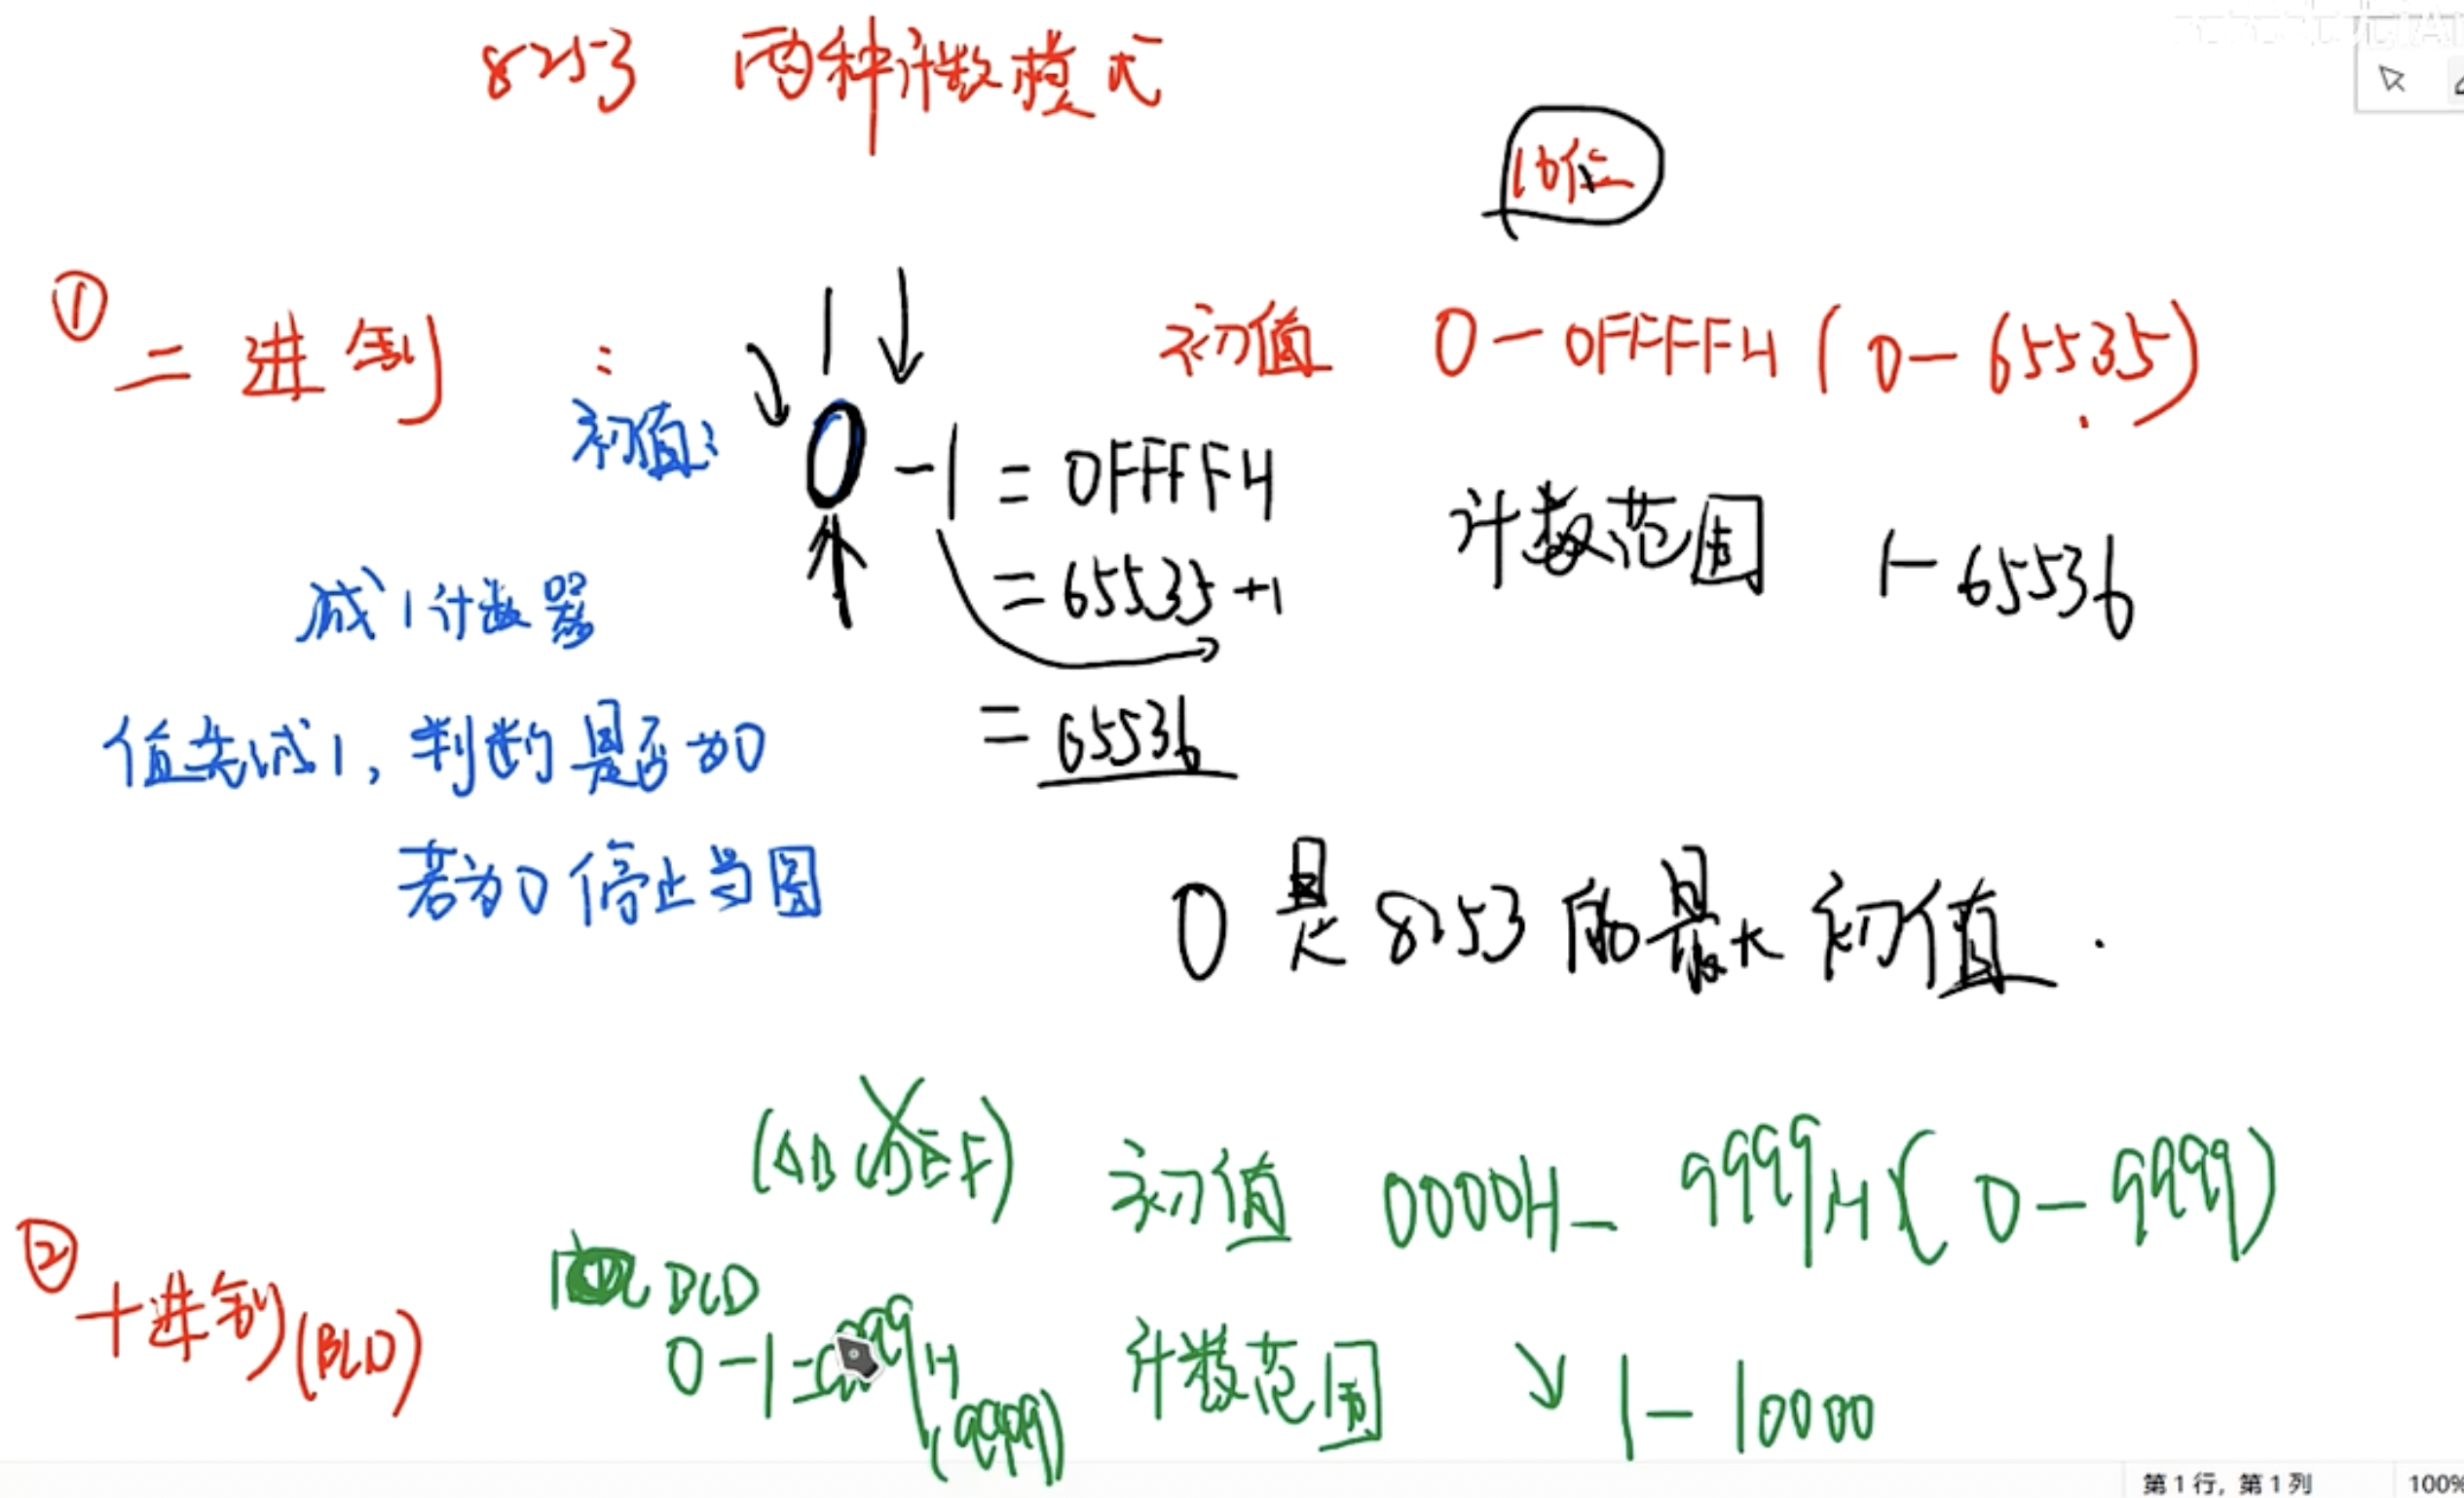 8253 两种计数模式
16位
① 二进制 : 初值 0-0FFFFH (0-65535)
初值: 0-1 = 0FFFFH
计数范围 1-65536
= 65535+1
减1计数器
= 65536
值先减1, 判断是否为0
若为0停止当图
0是8253的最大初值.
(ABCDEF) 初值 0000H- 9999H (0-9999)
② 十进制(BCD)
BCD
0-1=9999H
(9999)
计数范围 1-10000
第1行, 第1列 100%